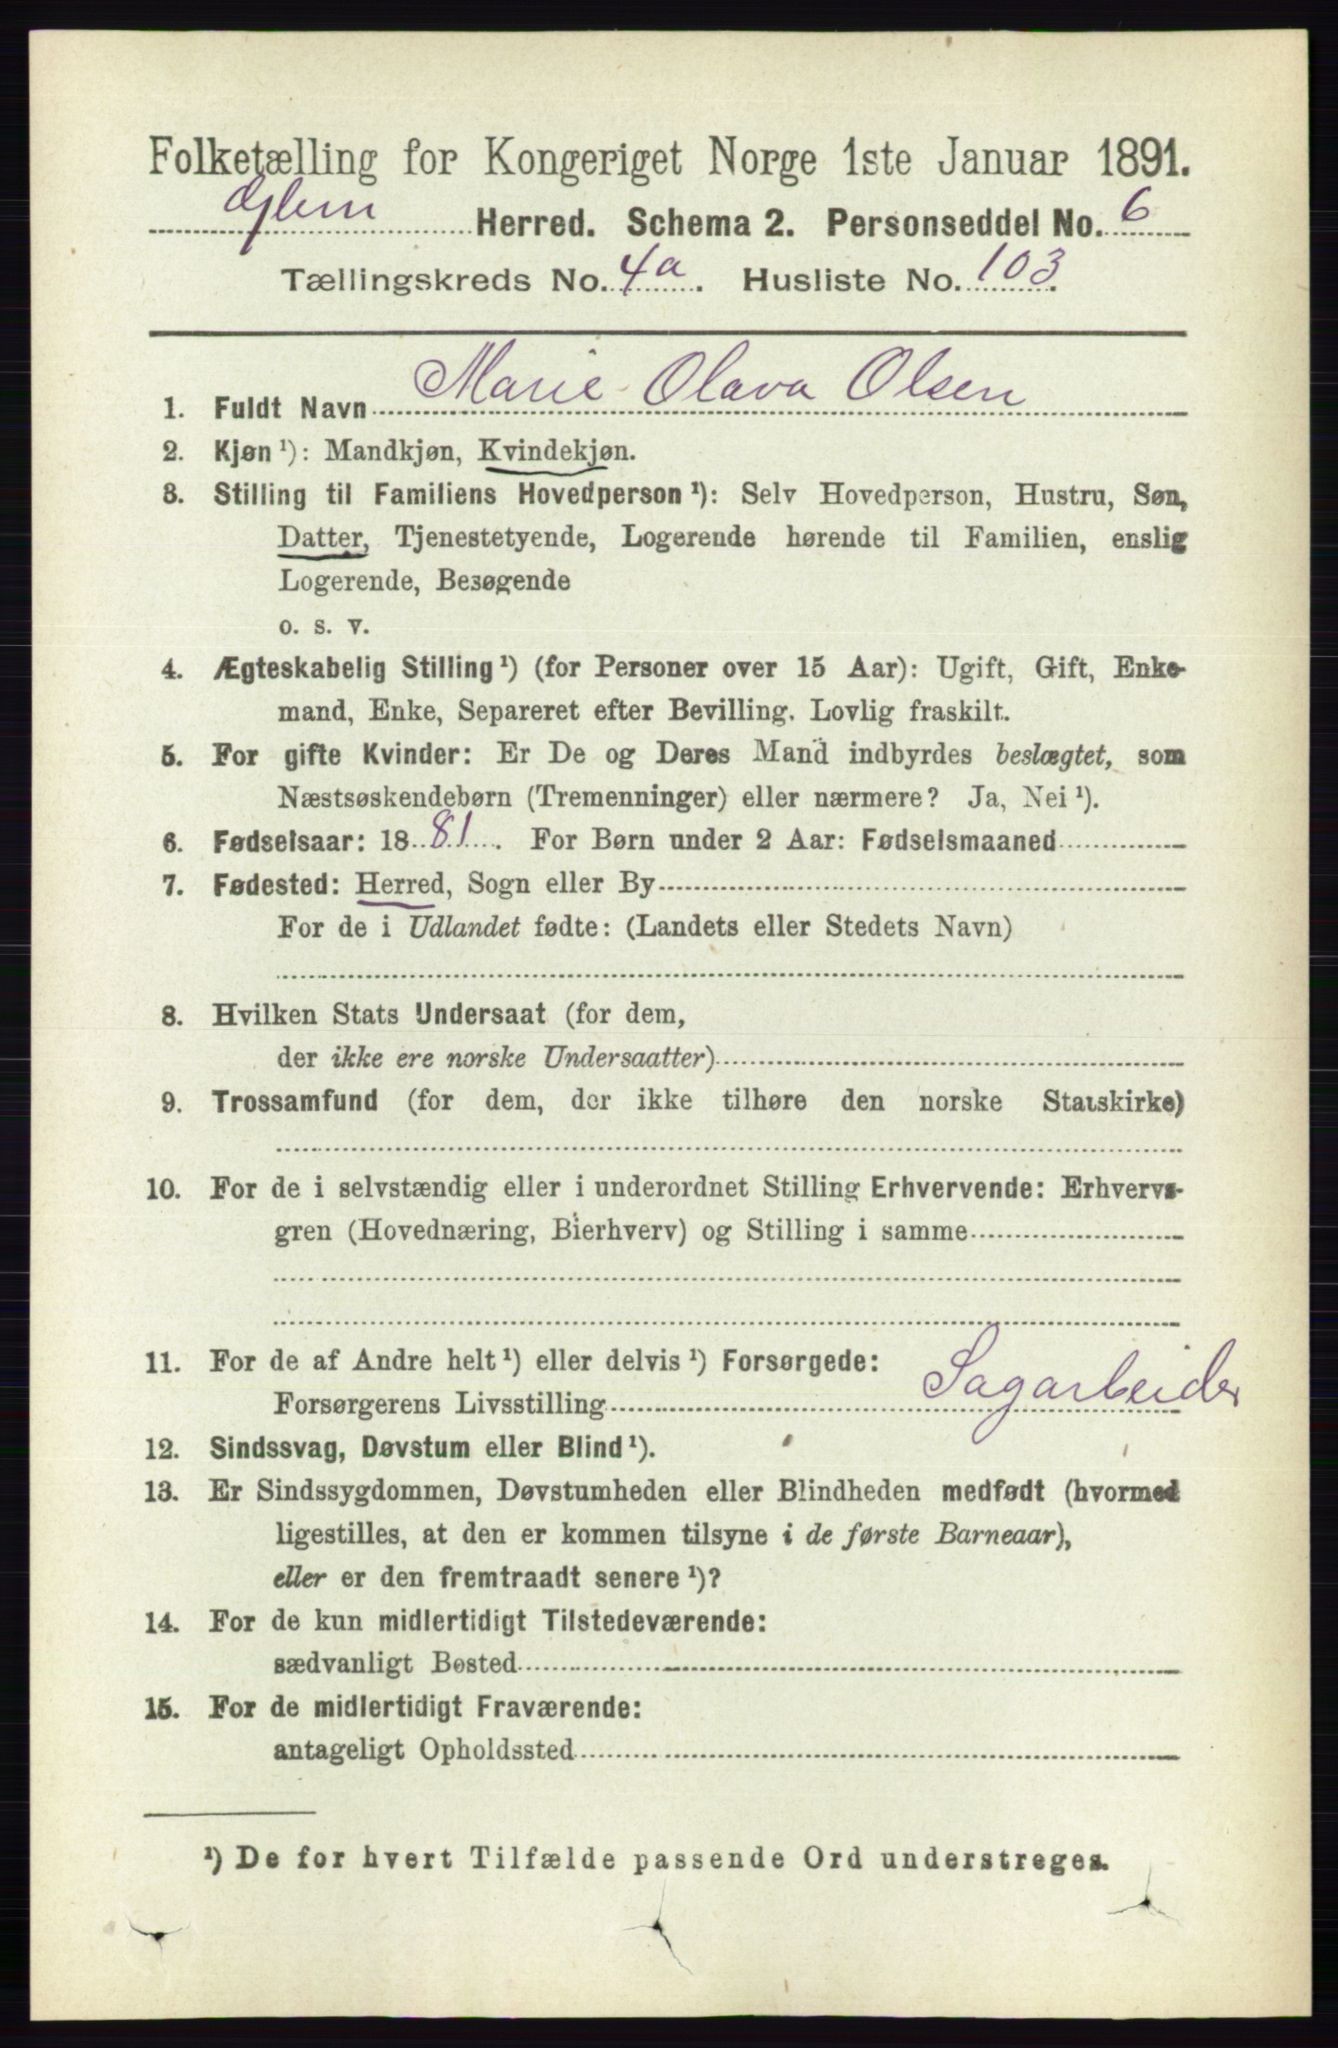 Folketælling for Kongeriget Norge 1ste Januar 1891.
Glem Herred. Schema 2. Personseddel No. 6
Tællingskreds No. 4a. Husliste No. 103.
1. Fuldt Navn Marie Olava Olsen
2. Kjøn¹): Mandkjøn, Kvindekjøn.
3. Stilling til Familiens Hovedperson¹): Selv Hovedperson, Hustru, Søn,
Datter, Tjenestetyende, Logerende hørende til Familien, enslig
Logerende, Besøgende
o. s. v.
4. Ægteskabelig Stilling¹) (for Personer over 15 Aar): Ugift, Gift, Enke-
mand, Enke, Separeret efter Bevilling. Lovlig fraskilt.
5. For gifte Kvinder: Er De og Deres Mand indbyrdes beslægtet, som
Næstsøskendebørn (Tremenninger) eller nærmere? Ja, Nei¹).
6. Fødselsaar: 1881. For Børn under 2 Aar: Fødselsmaaned
7. Fødested: Herred, Sogn eller By
For de i Udlandet fødte: (Landets eller Stedets Navn)
8. Hvilken Stats Undersaat (for dem,
der ikke ere norske Undersaatter)
9. Trossamfund (for dem, der ikke tilhøre den norske Statskirke)
10. For de i selvstændig eller i underordnet Stilling Erhvervende: Erhvervs-
gren (Hovednæring, Bierhverv) og Stilling i samme
11. For de af Andre helt¹) eller delvis¹) Forsørgede:
Forsørgerens Livsstilling Sagarbeider
12. Sindssvag, Døvstum eller Blind¹).
13. Er Sindssygdommen, Døvstumheden eller Blindheden medfødt (hvormed
ligestilles, at den er kommen tilsyne i de første Barneaar),
eller er den fremtraadt senere¹)?
14. For de kun midlertidigt Tilstedeværende:
sædvanligt Bosted
15. For de midlertidigt Fraværende:
antageligt Opholdssted
¹) De for hvert Tilfælde passende Ord understreges.